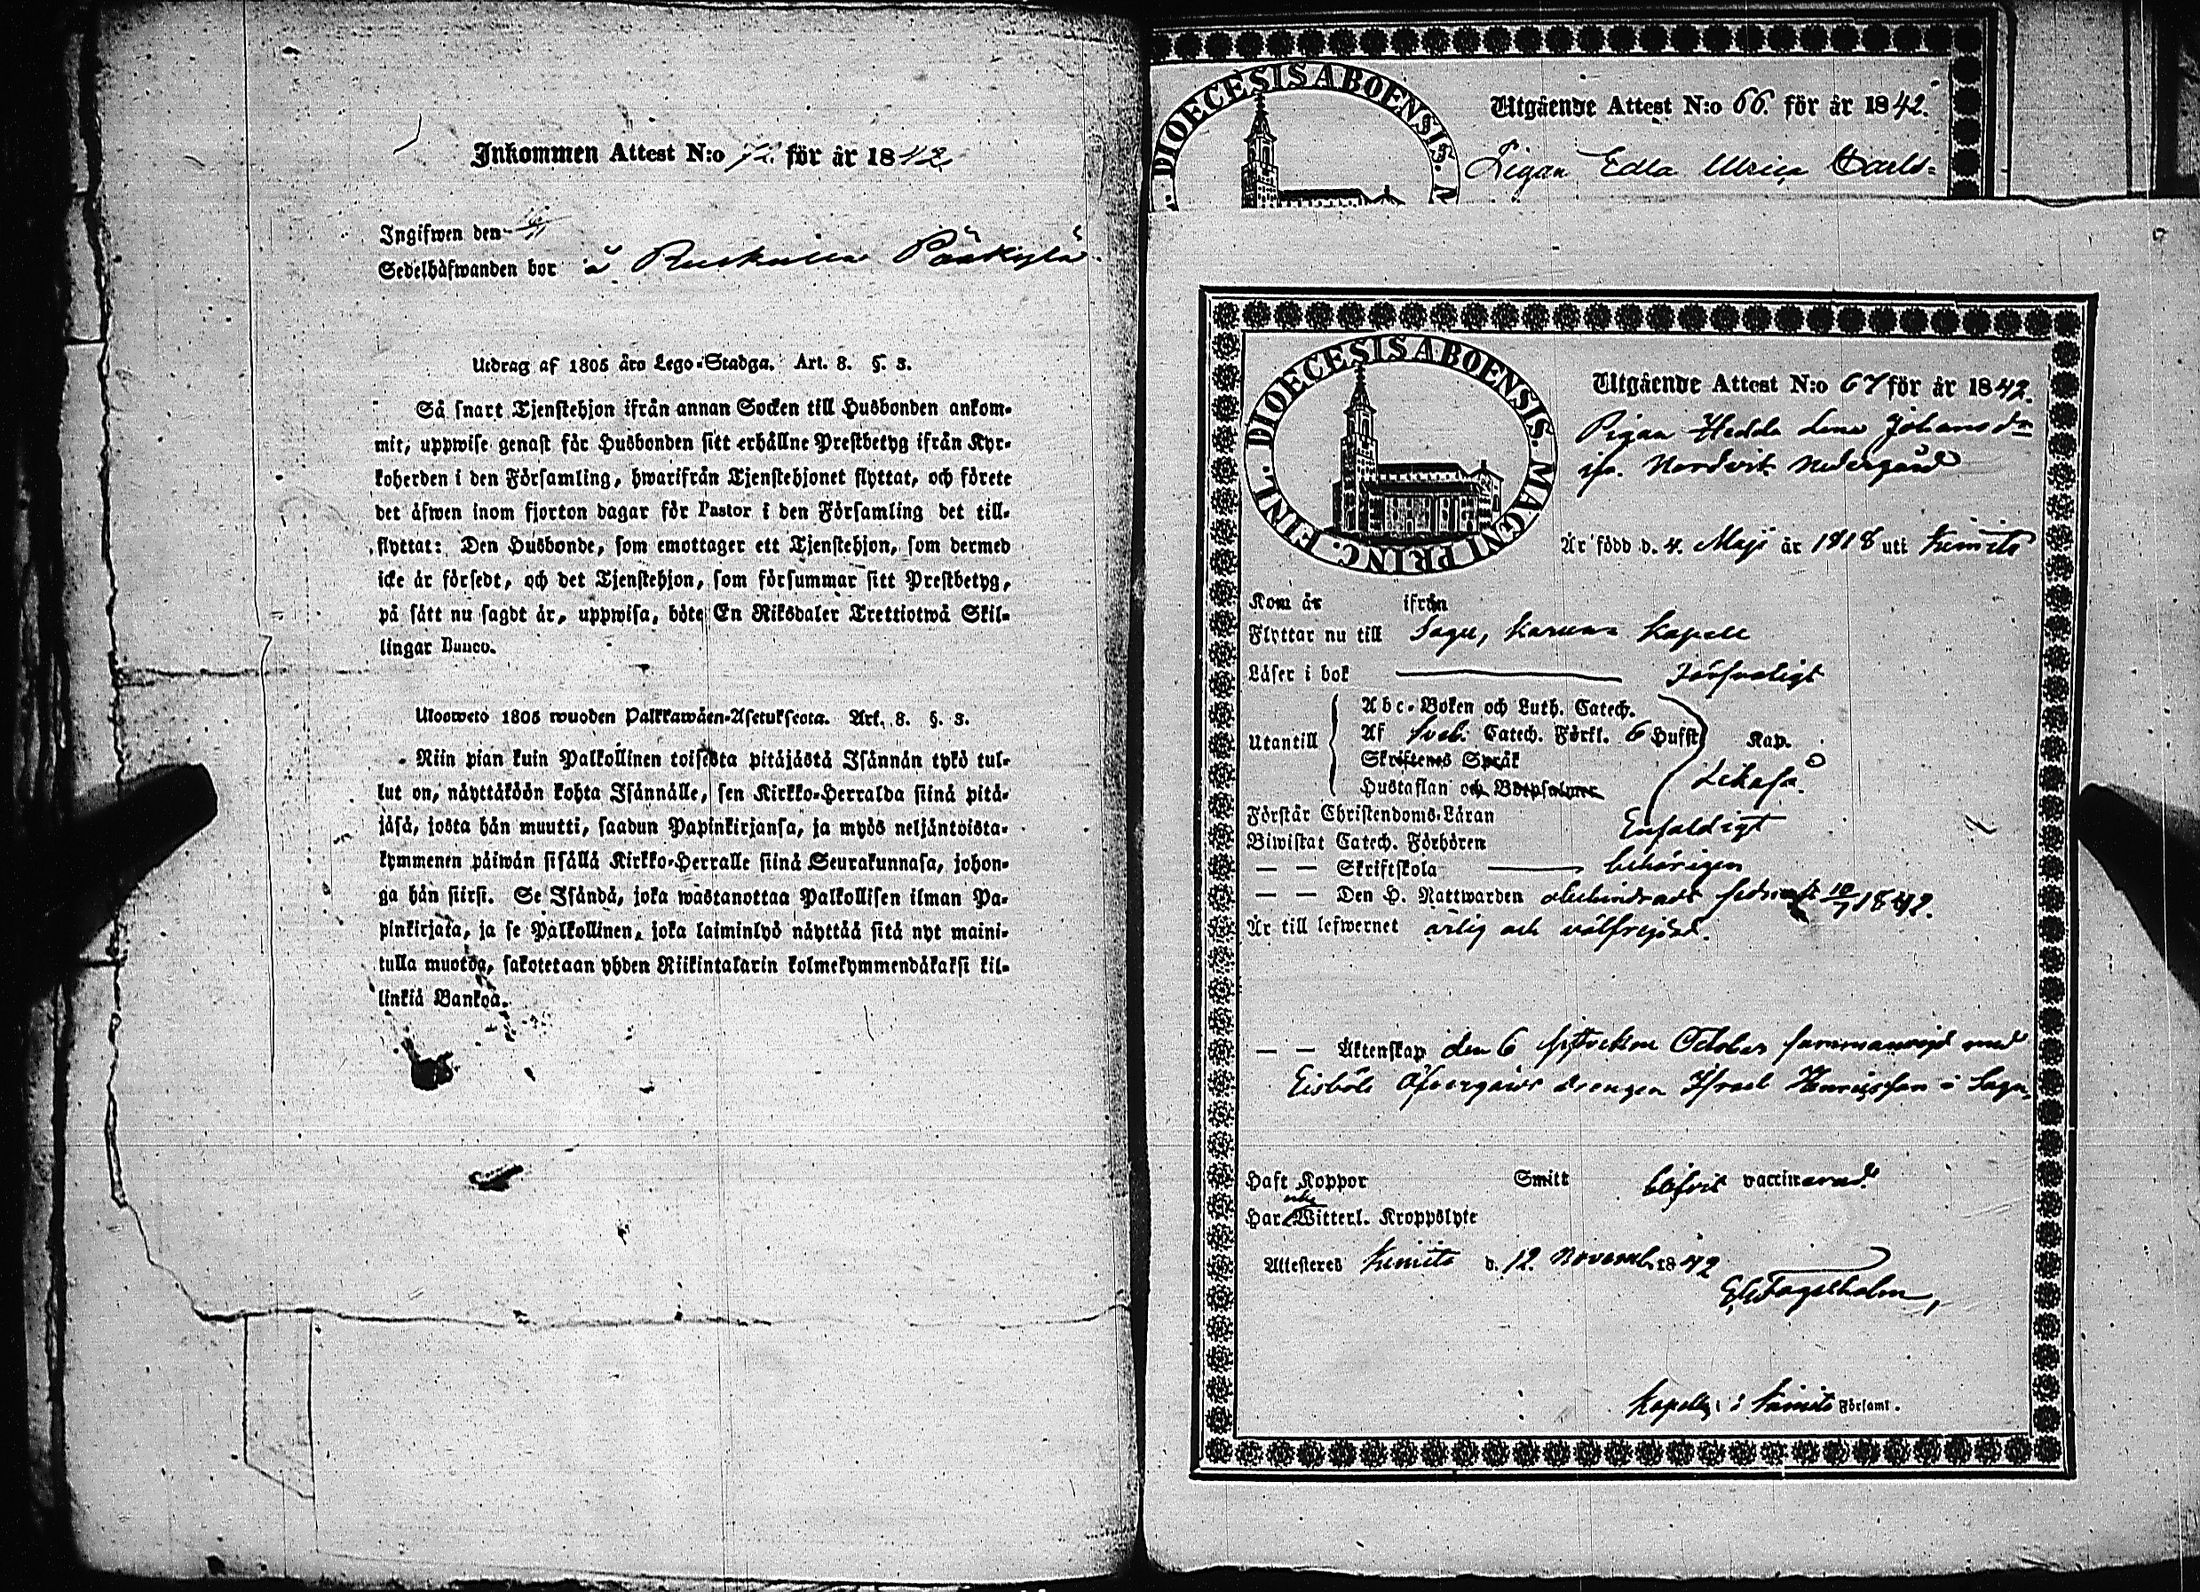 Inkommen Attest N:o 72. för år 1842
Ingifwen den
Sedelhåfwanden bor å Ruskulla Pääkylä.
Utdrag af 1805 års Lego-Stadga. Art. 8. §. 3.
Så snart Tjenstehjon ifrån annan Socken till Husbonden ankom-
mit, uppwise genast får Husbonden sitt erhållne Prestbetyg ifrån Kyr-
koherden i den Församling, hwarifrån Tjenstehjonet flyttat, och förete
det åfwen inom fjorton dagar för Pastor i den Församling det till-
flyttat: Den Husbonde, som emottager ett Tjenstehjon, som dermed
icke är försedt, och det Tjenstehjon, som försummar sitt Prestbetyg,
på sätt nu sagdt är, uppwisa, böte En Riksdaler Trettiotwå Skil-
lingar Banco.
Uloswetö 1805 wuoden Palkkawäen-Asetuksesta. Art. 8. §. 3.
Niin pian kuin Palkollinen toisesta pitäjästä Isännän tykö tul-
lut on, näyttäköön kohta Isännälle, sen Kirkko-Herralda siinä pitä-
jäsä, josta hän muutti, saadun Papinkirjansa, ja myös neljäntoista-
kymmenen päiwän sisällä Kirkko-Herralle siinä Seurakunnasa, johon-
ga hän siirsi. Se Isändä, joka wastanottaa Palkollisen ilman Pa-
pinkirjata, ja se Palkollinen, joka laiminlyö näyttää sitä nyt maini-
tulla muotoa, sakotetaan yhden Riikintalarin kolmekymmendäkaksi kil-
linkiä Bankoa.
DIOECESIS ABOENSIS. M
Utgående Attest N:o 66. för år 1842.
Pigan Edla Ulrica Carls-
DIOECESIS ABOENSIS. MAGNI PRINC. FINL.
Utgående Attest N:o 67 för år 1842.
Pigan Hedda Lena Johansdr
ifr. Nordvik Nedergård
Är född d. 4. Maji år 1818 uti Kimito
Kom år ifrån
Flyttar nu till Sagu, Karuna Kapell
Läser i bok Försvarligt
Abc-Boken och Luth. Catech.
Utantill Af Sveb. Catech. Förkl. 6 Hufst Kap.
Skriftenes Språk
Hustaflan och Botpsalmer Likaså.
Förstår Christendoms-Läran Enfaldigt
Biwistat Catech. Förhören
— — Skriftskola behörigen
— — Den H. Nattwarden sednast 10/7 1842.
Är till lefwernet ärlig och välfrejdad.
— — Äktenskap den 6 October sammanvigd med
Eisböle Öfvergårds drengen Israel Henricsson i Sagu.
Haft Koppor Smitt blifvit vaccinerad.
Har icke Witterl. Kroppslyte
Attesteres Kimito d. 12 Novemb. 1842
Fagerholm,
Kapell: i Kimito Församl.